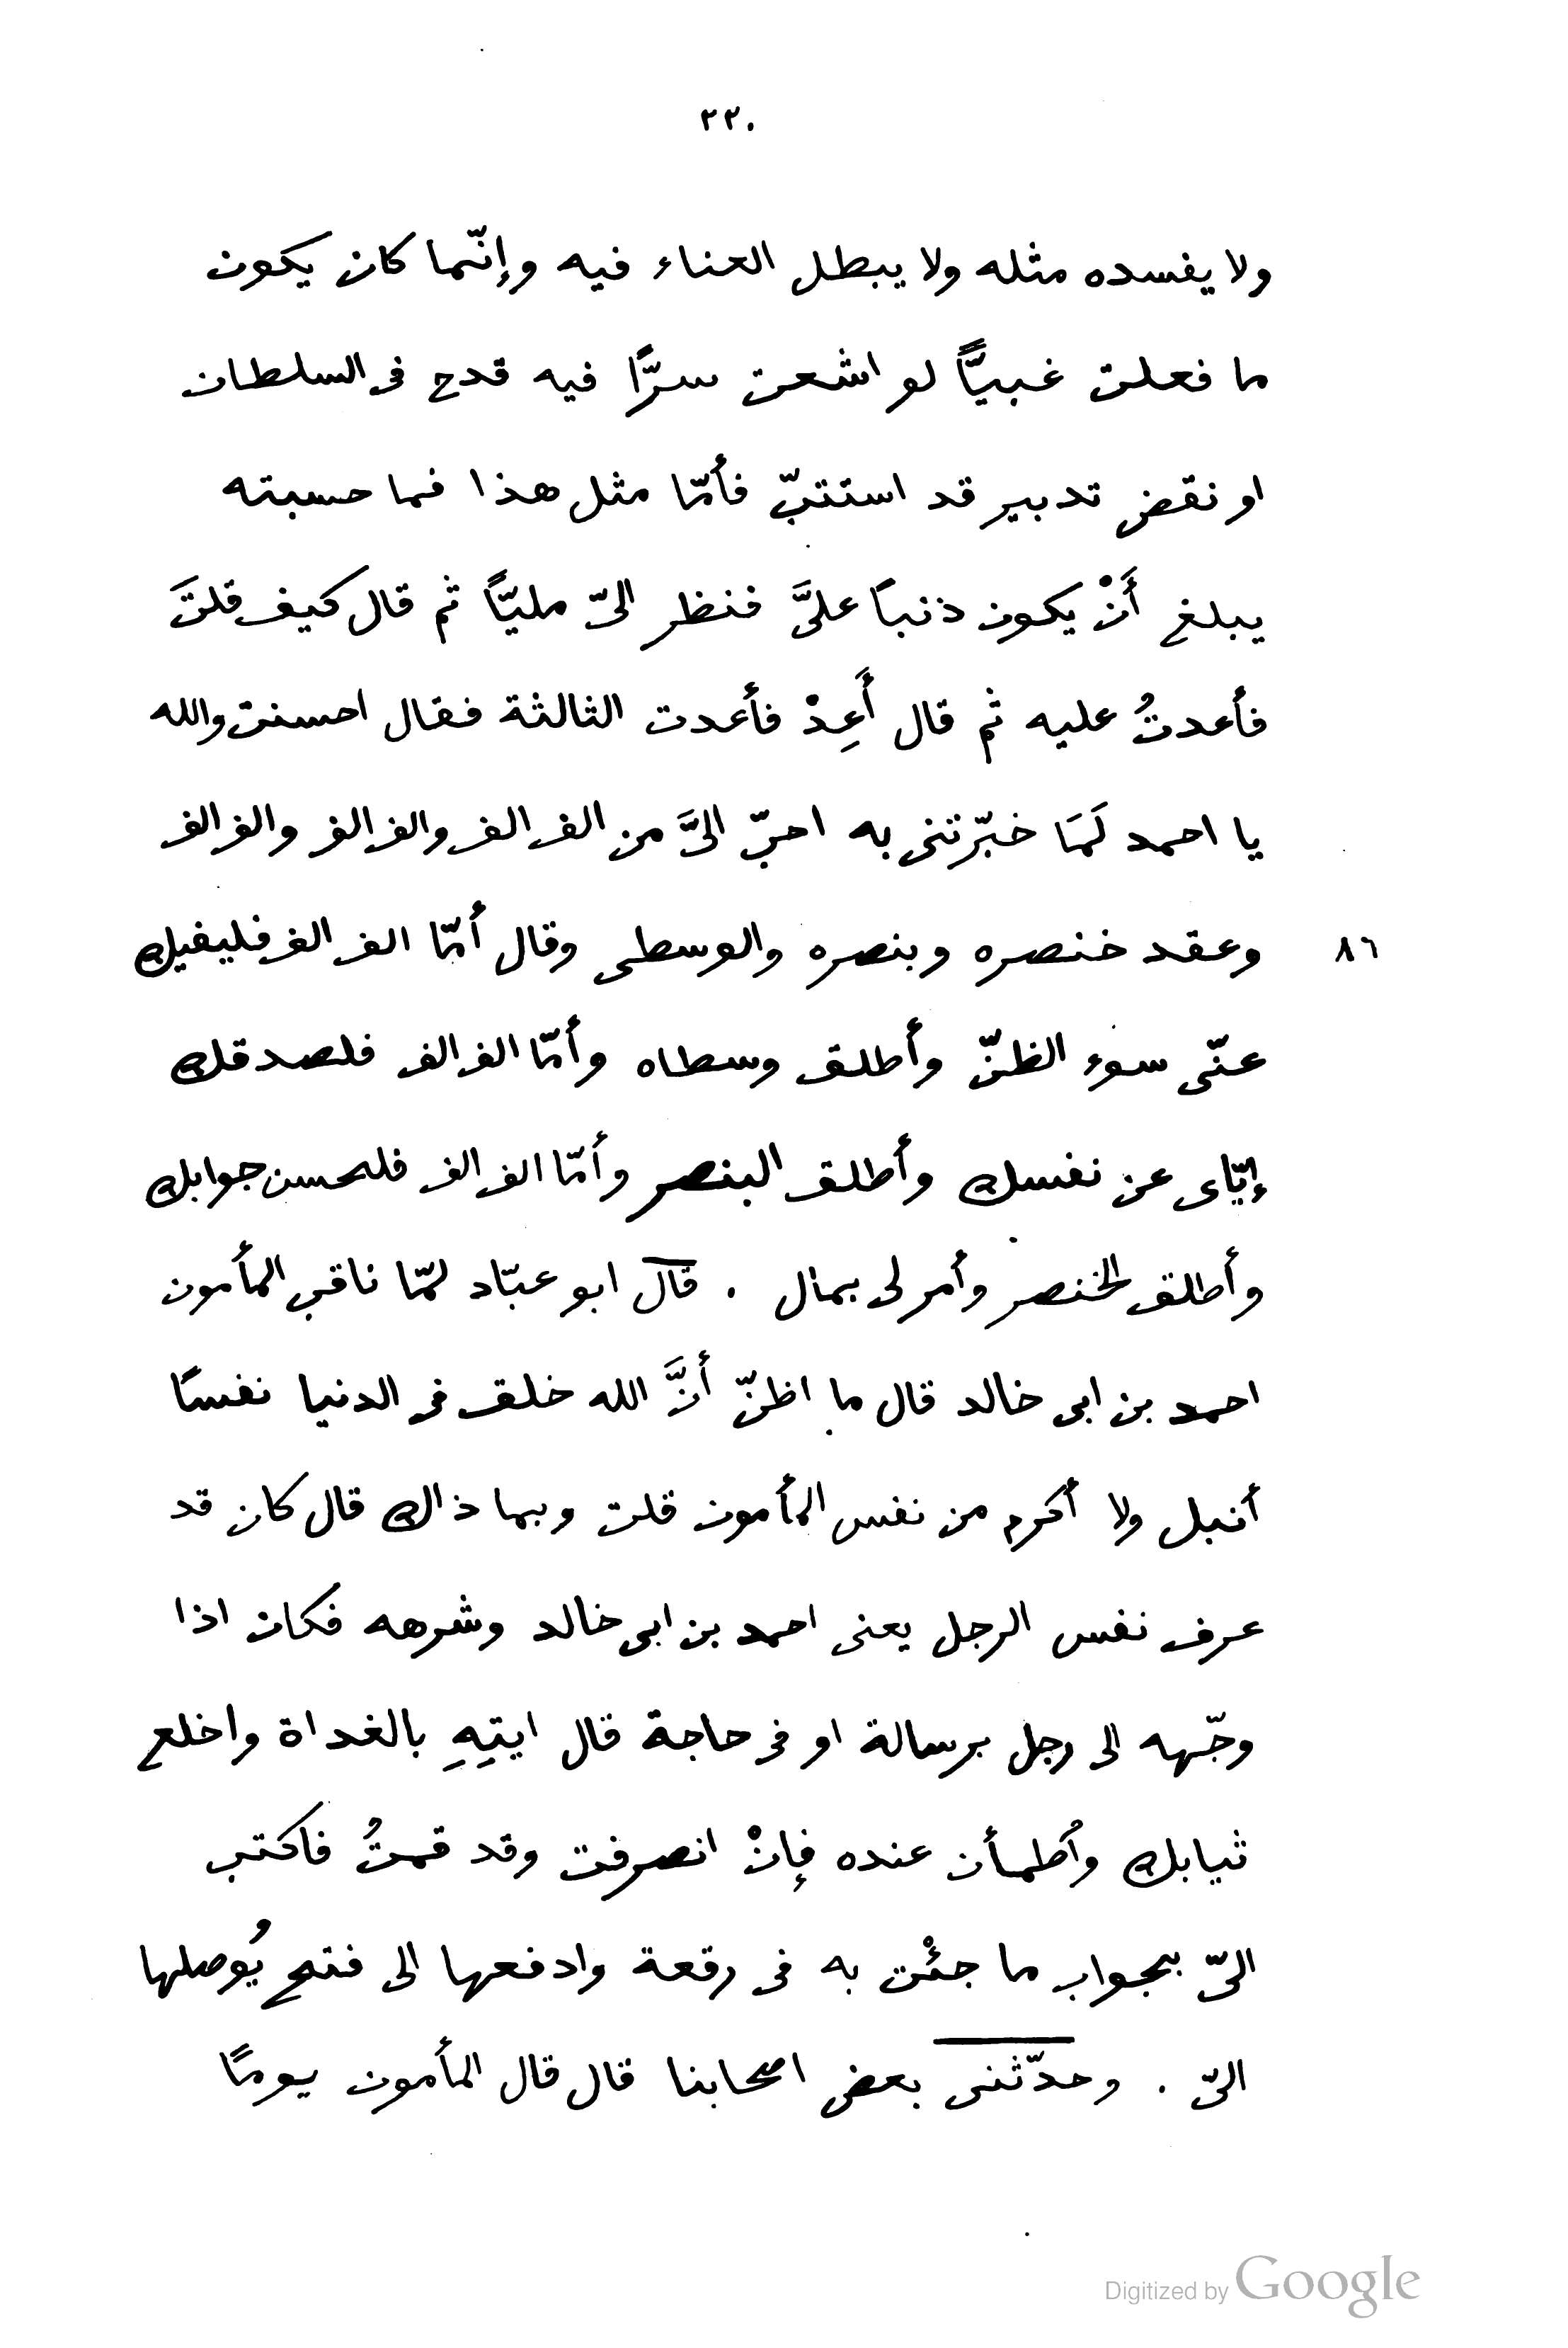 ٢٢٠
ولا يفسده مثله ولا يبطل العناء فيه وإنّما كان يكون
ما فعلت غبيًّا لو اشعت سرًّا فيه قدح فى السلطان
او نقض تدبير قد استتبّ فأمّا مثل هذا فما حسبته
يبلغ أَنْ يكون ذنبًا علىَّ فنظر الىّ مليًّا ثم قال كيف قلتَ
فأعدتُ عليه ثم قال أَعِدْ فأعدت الثالثة فقال احسنت والله
يا احمد لَمَا خبّرتنى به احبّ الىَّ من الف الف والف الف والف الف
وعقد خنصره وبنصره والوسطى وقال أمّا الف الف فليفيك ٨٦
عنّى سوء الظنّ وأطلق وسطاه وأمّا الف الف فلصدقك
إيّاى عن نفسك وأطلق البنصر وأمّا الف الف فلحسن جوابك
وأطلق الخنصر وأمر لى بمال . قال ابو عبّاد لمّا ناقب المأمون
احمد بن ابى خالد قال ما اظنّ أنَّ الله خلق فى الدنيا نفسًا
أنبل ولا أكرم من نفس المأمون قلت وبما ذاك قال كان قد
عرف نفس الرجل يعنى احمد بن ابى خالد وشرهه فكان اذا
وجّهه الى رجل برسالة او فى حاجة قال ايتِهِ بالغداة واخلع
ثيابك واُطمأن عنده فإنْ انصرفت وقد قمتُ فاكتب
الىّ بجواب ما جئْت به فى رقعة وادفعها الى فتح يُوصلها
الىّ . وحدّثنى بعض اصحابنا قال قال المأمون يومًا
Digitized by Google